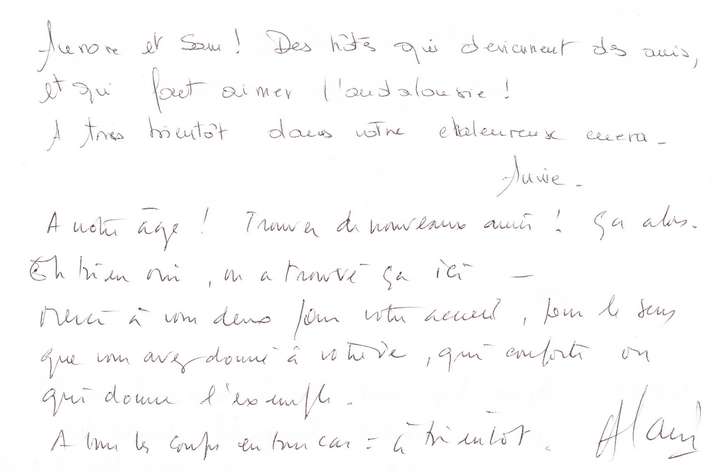 Aurore et Sam ! Des hôtes qui deviennent des amis,
et qui font aimer l'andalousie !
A très bientôt dans votre chaleureux
Annie.
A notre âge ! Trouver de nouveaux amis ! ça alors.
Eh bien oui, on a trouvé ça ici —
Merci à vous deux pour votre accueil, pour le sens
que vous avez donné à votre vie, qui conforte ou
qui donne l'exemple.
A tous les coups en tous cas = à bientôt. Alain